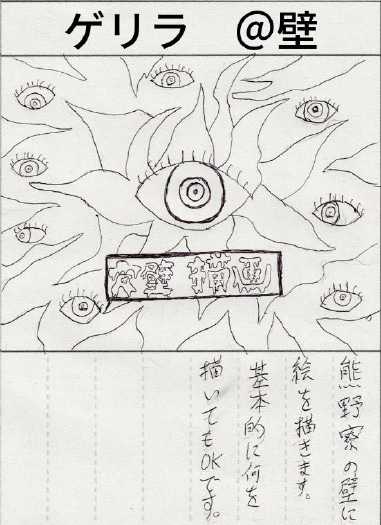 ゲリラ　@壁
壁描画
熊野寮の壁に
絵を描きます。
基本的に何を
描いてもOKです。